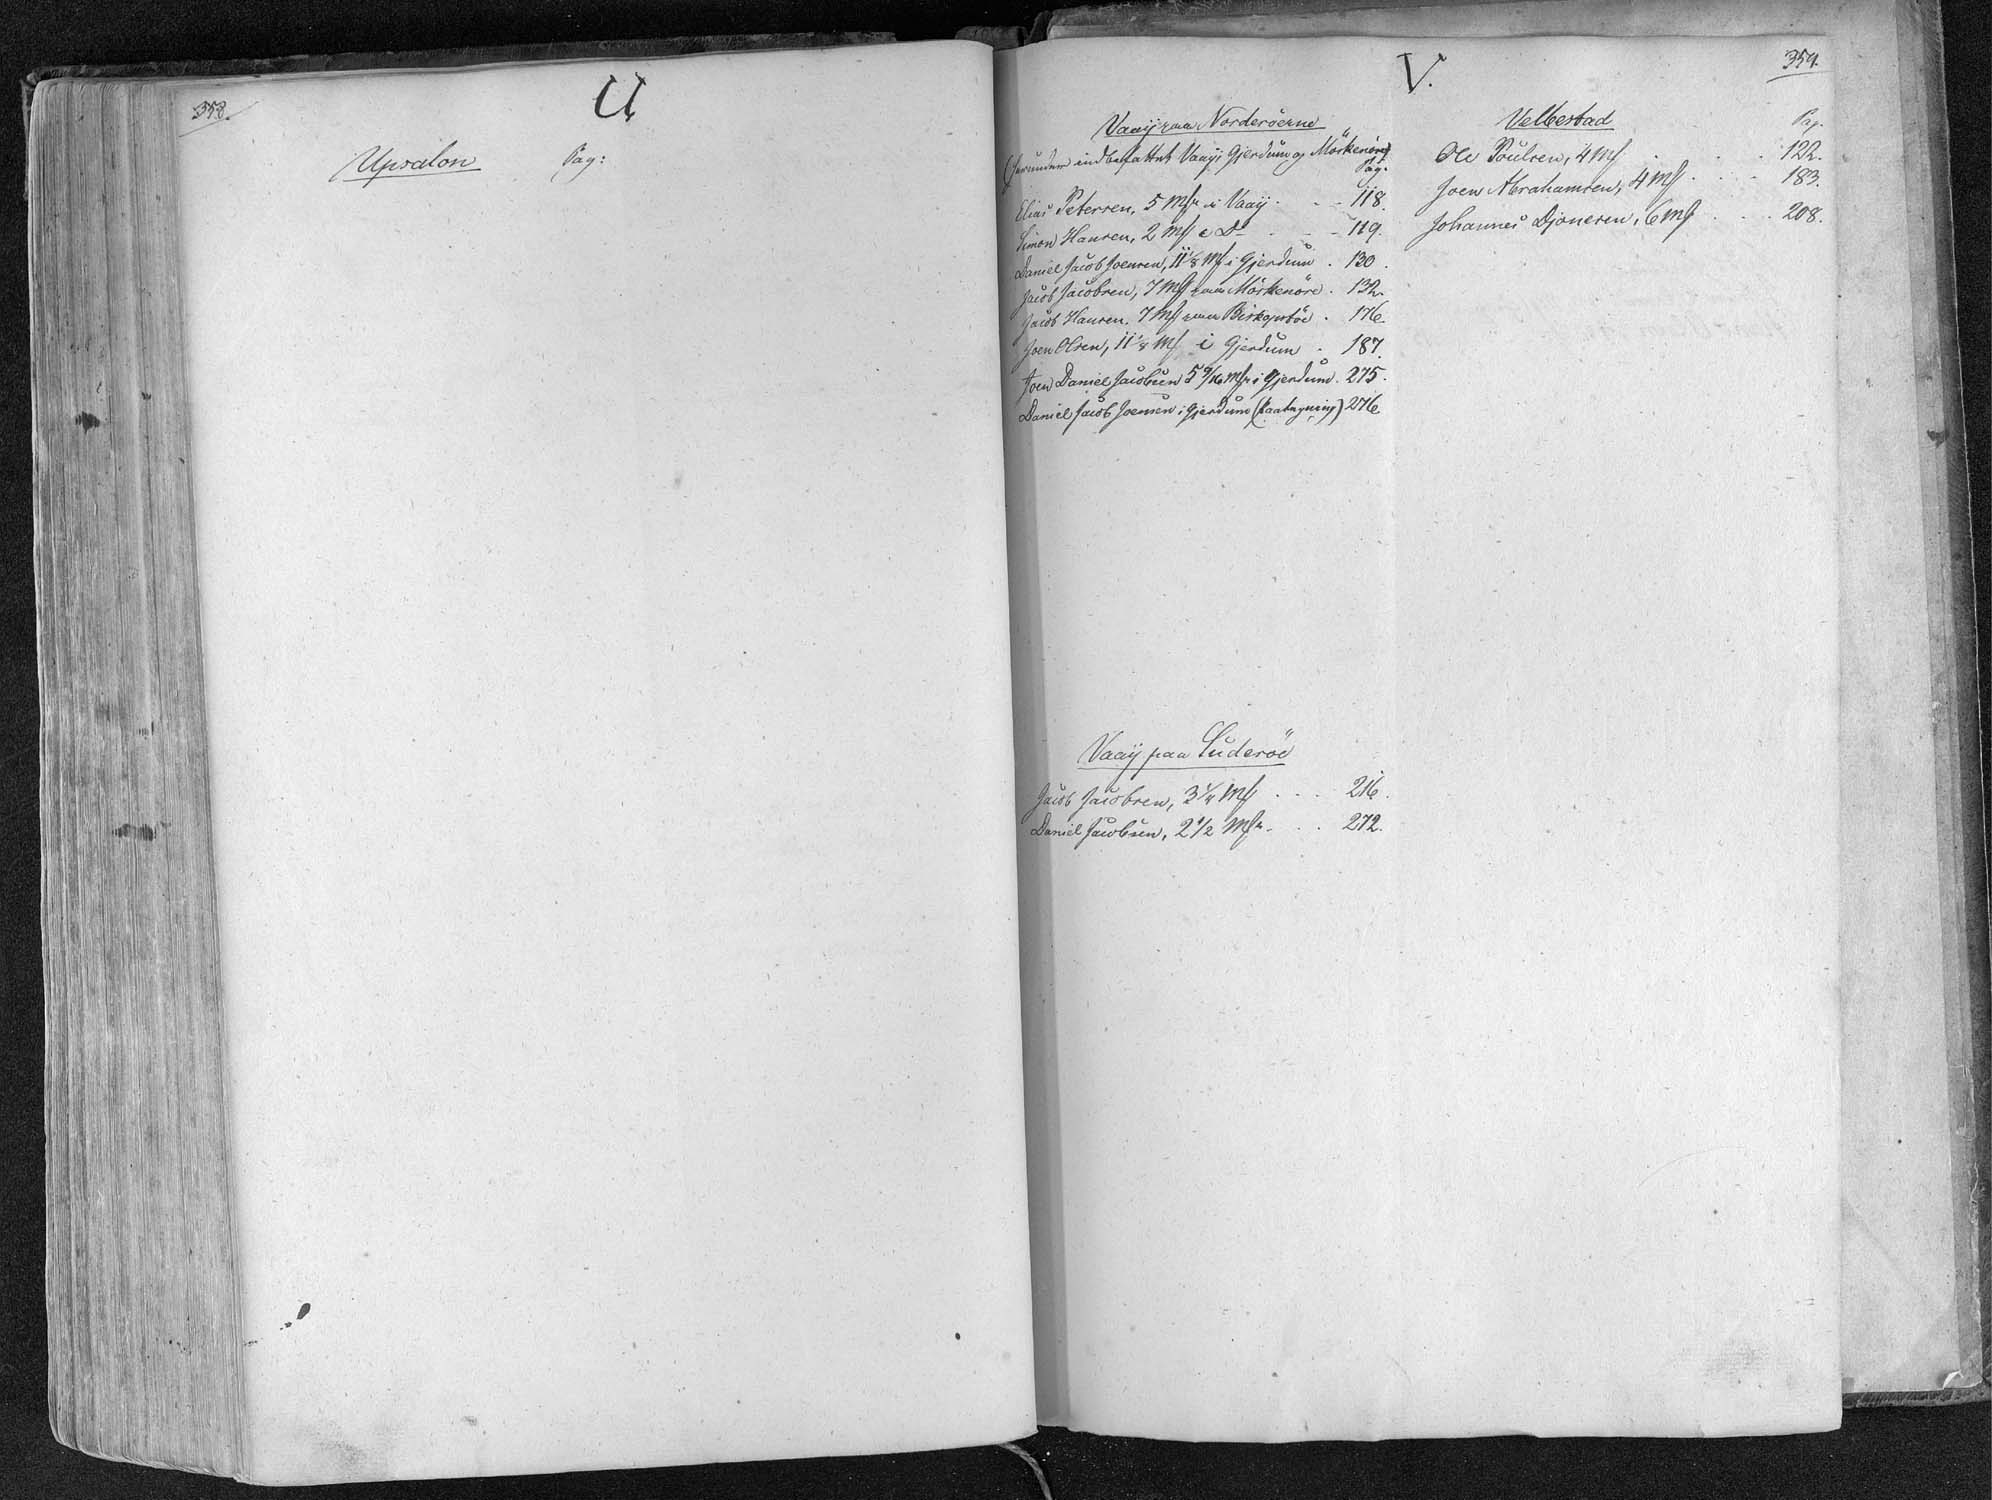 358.
U
Upsalon Pag:
359.
V.
Vaaij paa Norderöerne
(herunder indbefattet Vaaij, Gjerdum og Mörkenöre)
Pag:
Elias Petersen, 5 Mk i Vaaij . . . 118.
Simon Hansen, 2 Mk i Do . . . 119.
Daniel Jacob Joensen, 11 1/8 Mk i Gjerdum . 130.
Jacob Jacobsen, 7 Mk paa Mörkenöre . 132.
Jacob Hansen, 7 Mk paa Biskopstöe . 176
Joen Olsen, 11 1/8 Mk i Gjerdum . 187.
Joen Daniel Jacobsen 5 9/16 Mk i Gjerdum . 275.
Daniel Jacob Joensen i Gjerdum (Paategning) 276
Vaaij paa Suderöe
Jacob Jacobsen, 3 1/4 Mk . . . 216.
Daniel Jacobsen, 2 1/2 Mk . . . 272.
Velbestad
Pag.
Ole Poulsen, 4 Mk . . . . 122.
Joen Abrahamsen, 4 Mk . . . 183.
Johannes Djonesen, 6 Mk . . . 208.